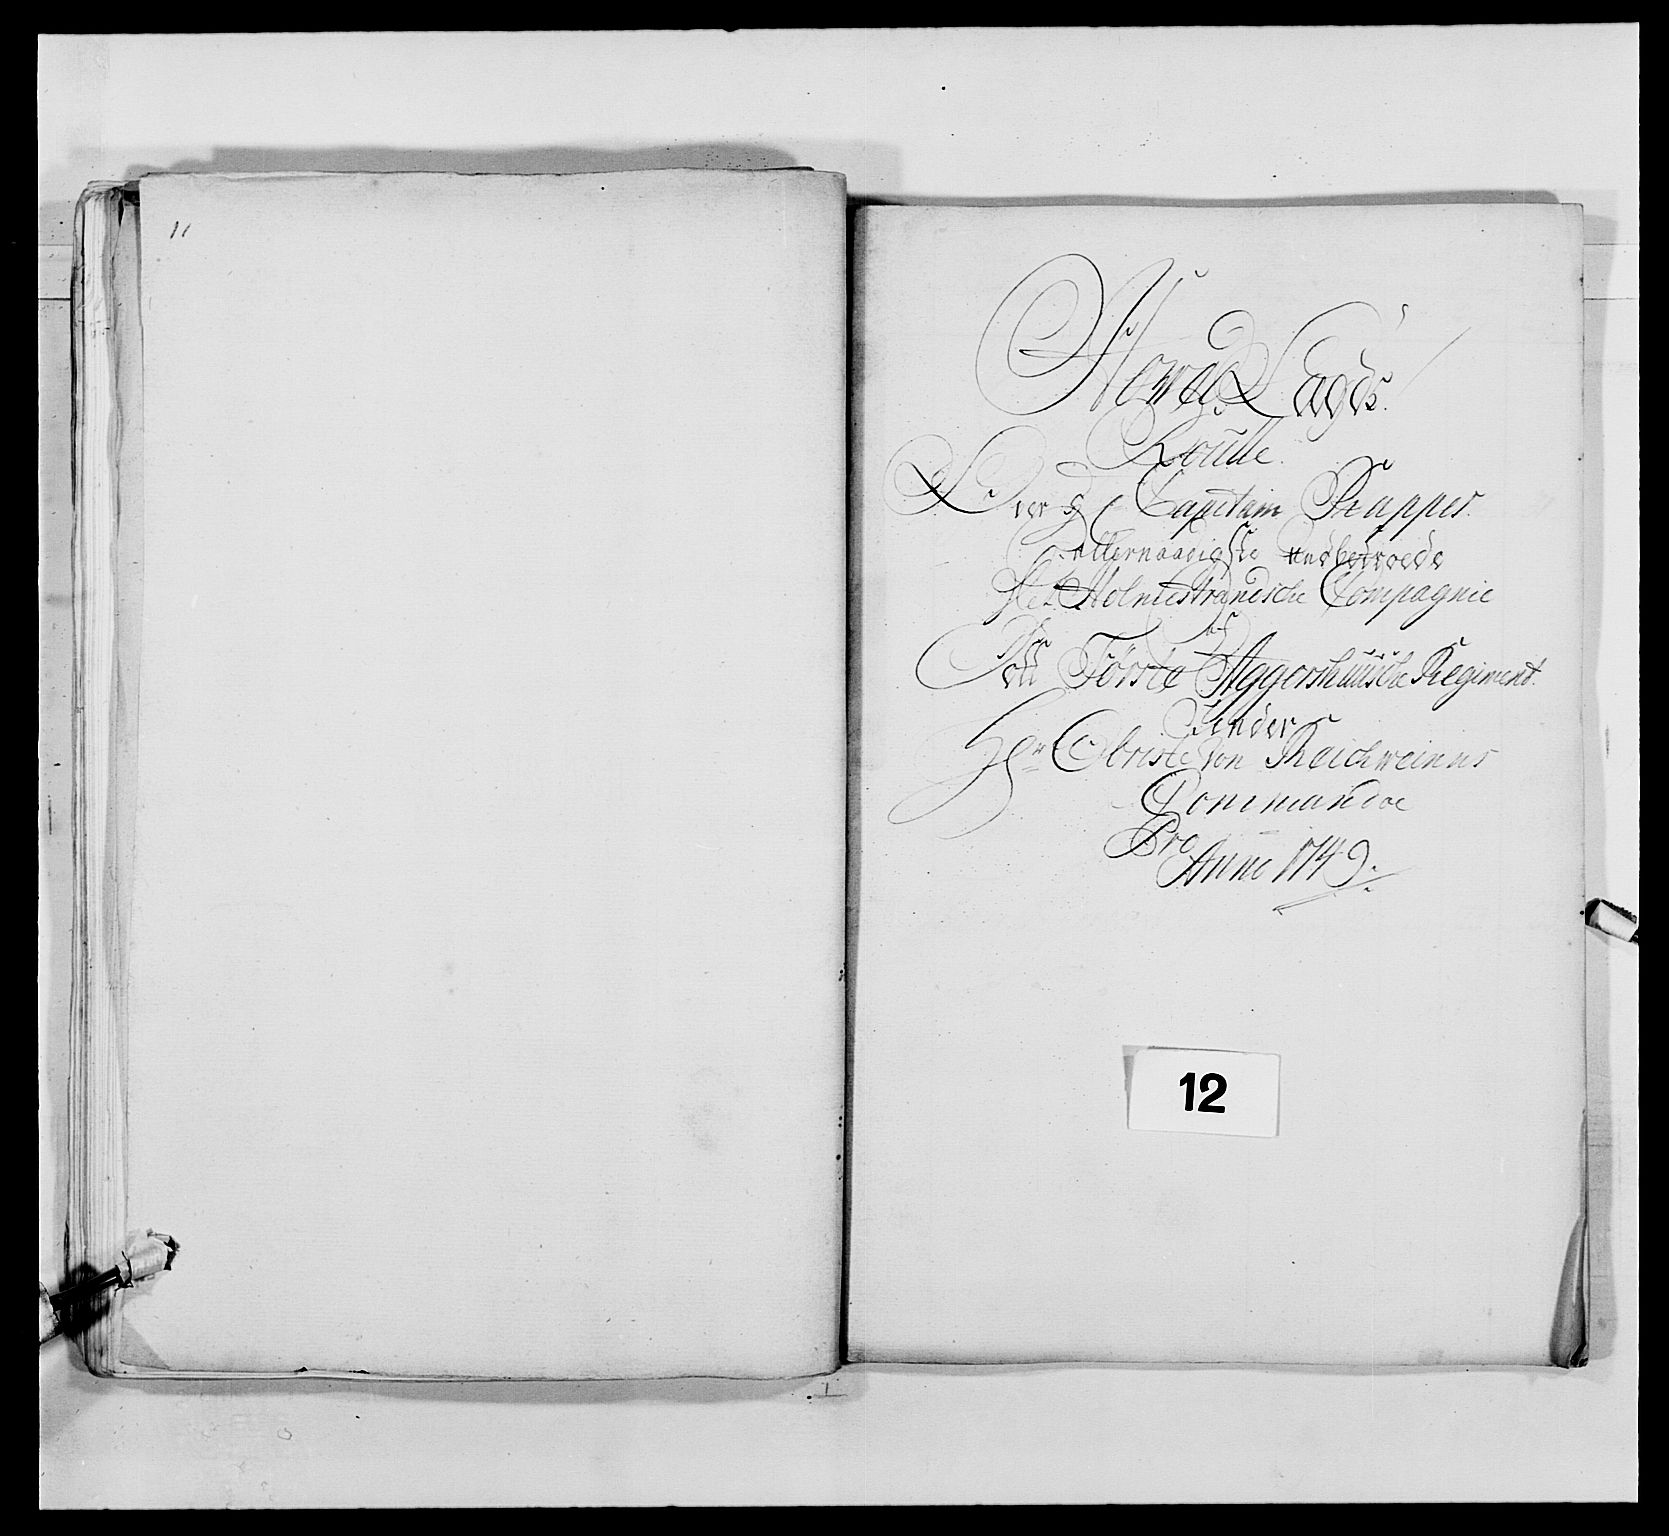 11
Hoved Lægds
Roulle
Over H Capitain Rappes
allernaadigste anbetroede
Holmestrandsche Compagnie
af
Det Første Aggershuusche Regiment
under
Hr Obriste von Reichweins
Commandoe
Pro
Anno 1749.
12